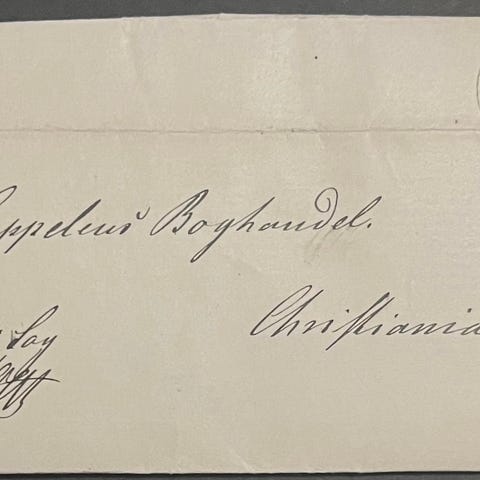 appelens Boghandel.
Christiania
Sag